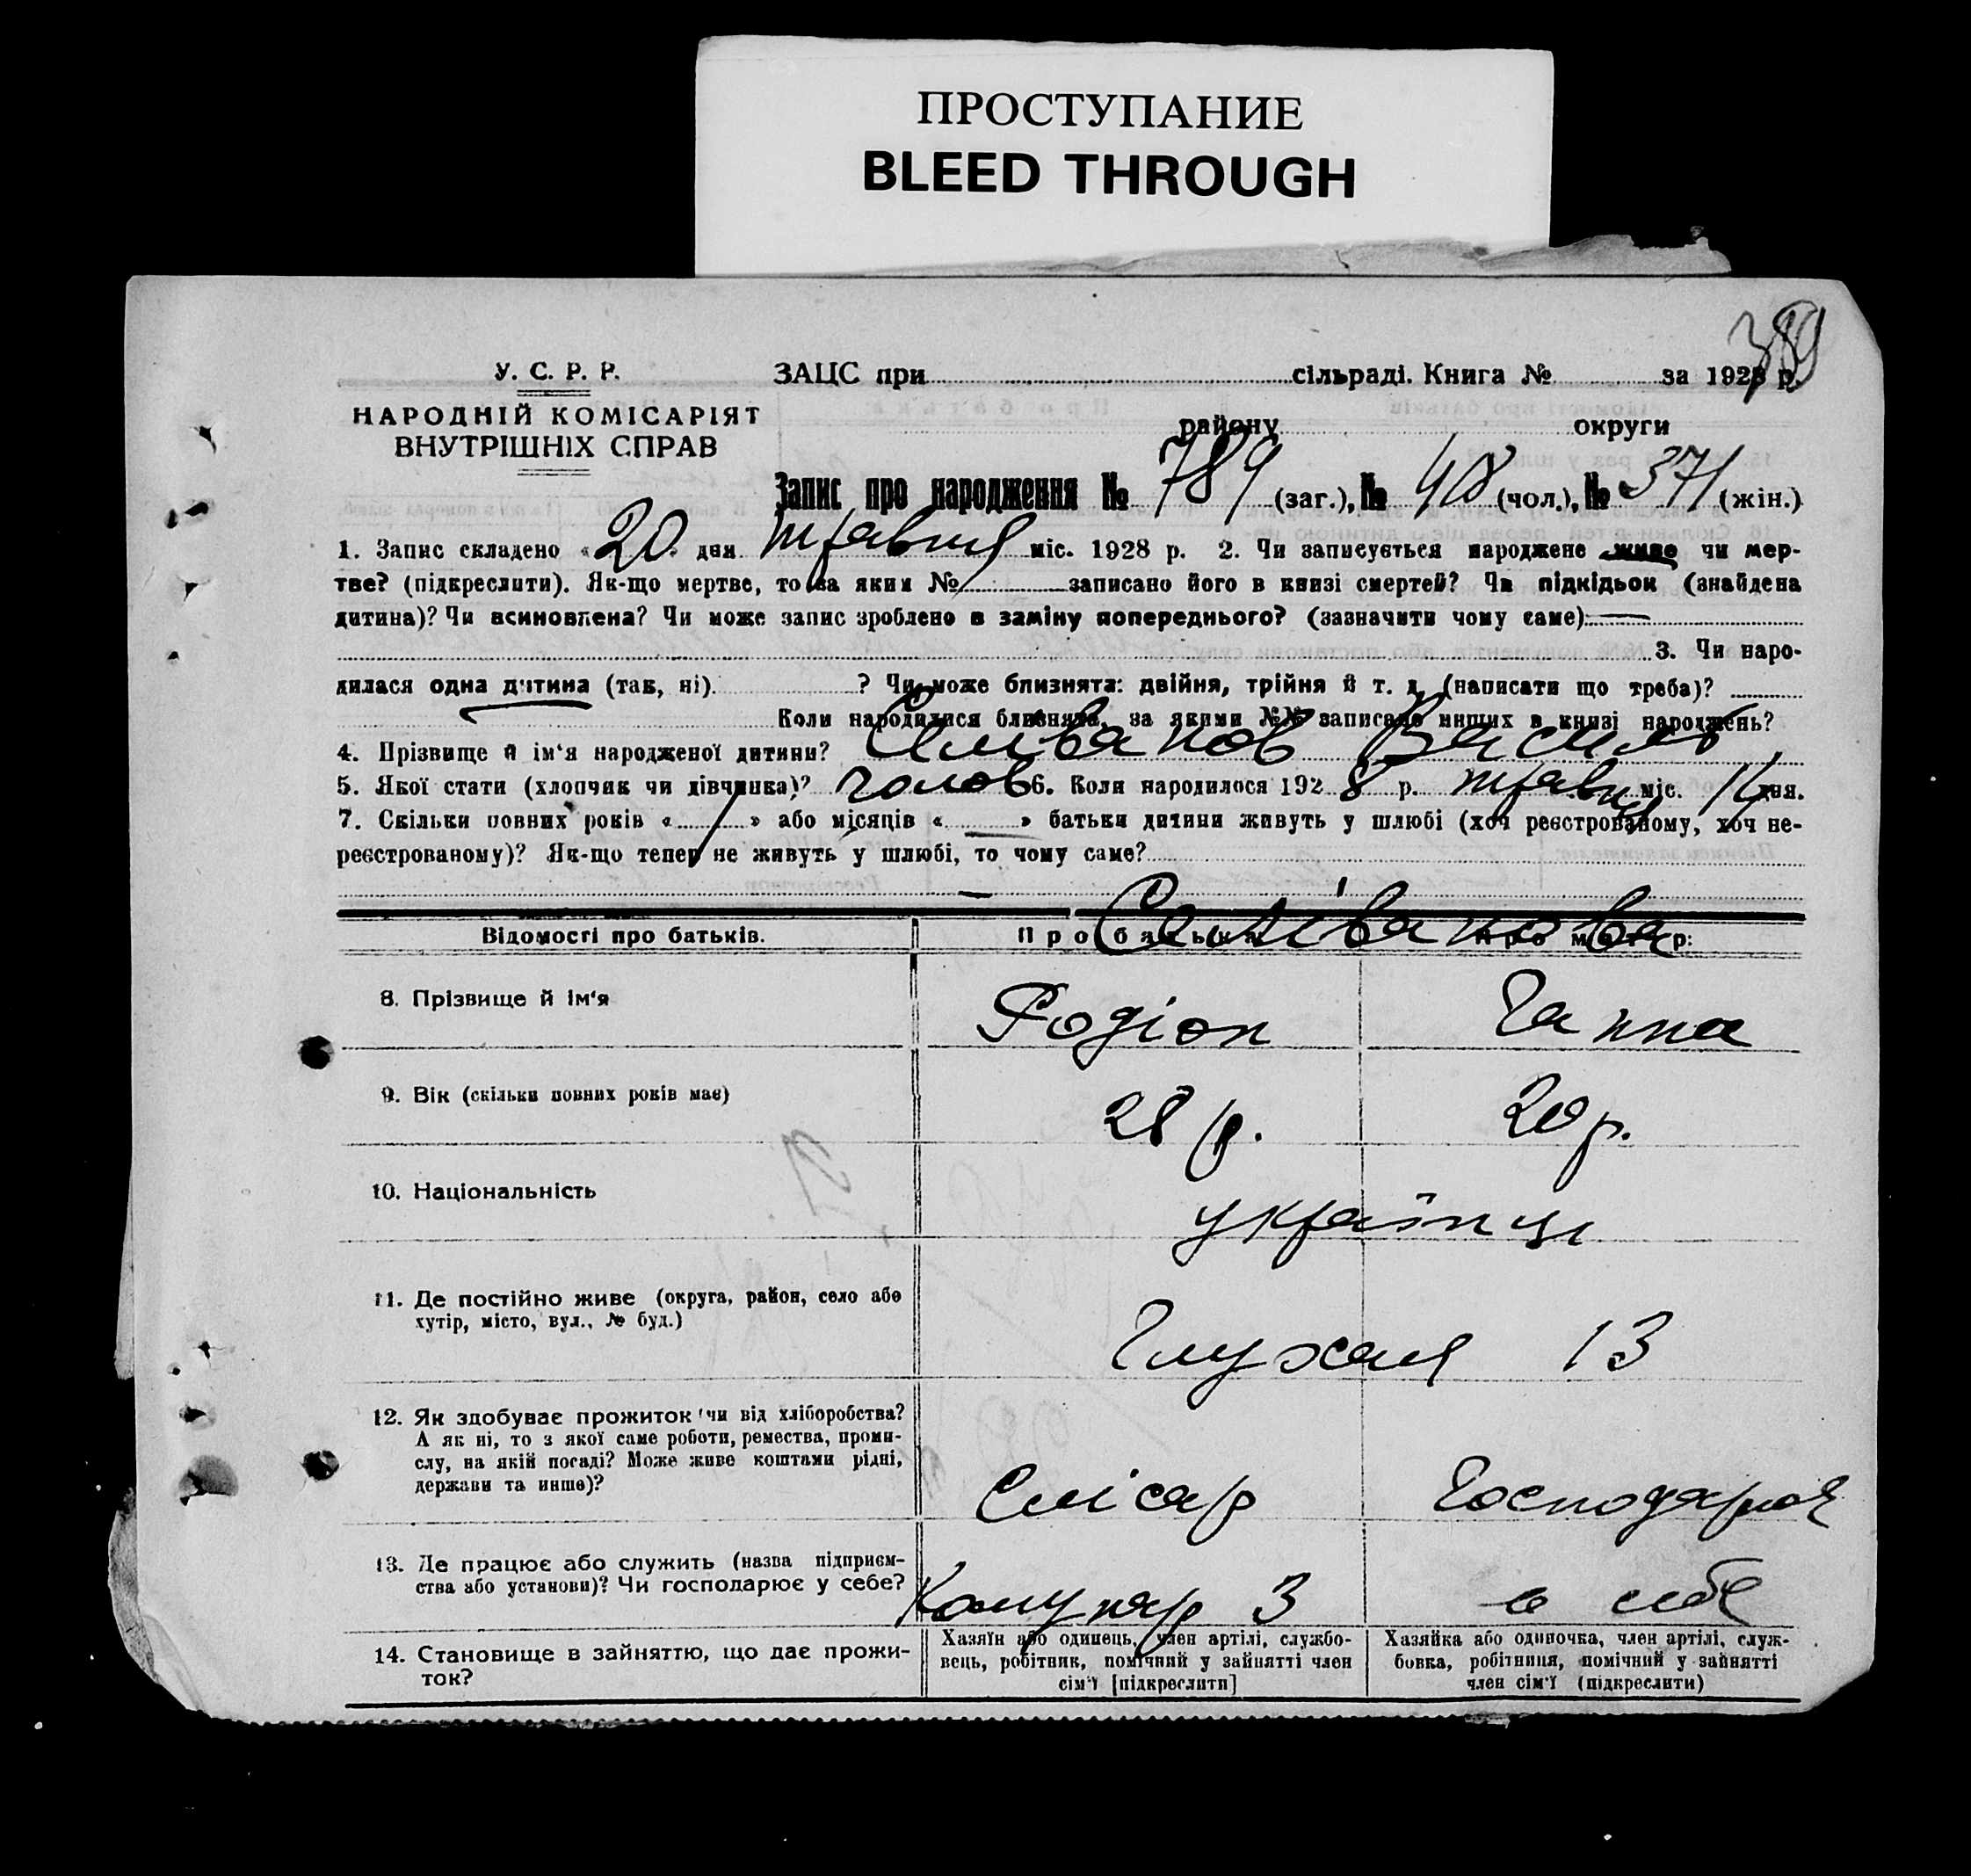 ПРОСТУПАНИЕ
BLEED THROUGH
389
У. С. Р. Р.
НАРОДНІЙ КОМІСАРІЯТ
ВНУТРІШНІХ СПРАВ
ЗАЦС при сільраді. Книга № за 1928 р.
району округи
Запис про народження № 789 (заг.), № 418 (чол.), № 371 (жін.)
1. Запис складено «20» дня травня міс. 1928 р. 2. Чи записується народжене живе чи мер-
тве? (підкреслити). Як-що мертве, то за яким № записано його в книзі смертей? Чи підкідьок (знайдена
дитина)? Чи всиновлена? Чи може запис зроблено в заміну попереднього? (зазначити чому саме) —
3. Чи наро-
дилася одна дитина (так, ні). ? Чи може близнята: двійня, трійня й т. д. (написати що треба)?
Коли народилися близнята, за якими №№ записано инших в книзі народжень?
4. Прізвище й ім'я народженої дитини? Селіванов Василь
5. Якої стати (хлопчик чи дівчинка)? чолов 6. Коли народилося 1928 р. травня міс. дня.
7. Скільки повних років « 1 » або місяців « — » батьки дитини живуть у шлюбі (хоч реєстрованому, хоч не-
реєстрованому)? Як-що тепер не живуть у шлюбі, то чому саме?
—
Відомості про батьків. Про батька: Про матір:
Селіванова
8. Прізвище й ім'я Родіон Ганна
9. Вік (скільки повних років має) 28 р. 20 р.
10. Національність українці
11. Де постійно живе (округа, район, село або
хутір, місто, вул., № буд.) Глухая 13
12. Як здобуває прожиток чи від хліборобства?
А як ні, то з якої саме роботи, ремества, проми-
слу, на якій посаді? Може живе коштами рідні,
держави та инше)? Слісар Господарює
13. Де працює або служить (назва підприєм-
ства або установи)? Чи господарює у себе? Комунар 3 в себе
14. Становище в зайняттю, що дає прожи-
ток?
Хазяїн або одинець, член артілі, службо-
вець, робітник, помічний у зайнятті член
сім'ї [підкреслити]
Хазяйка або одиночка, член артілі, служ-
бовка, робітниця, помічний у зайнятті
член сім'ї (підкреслити)